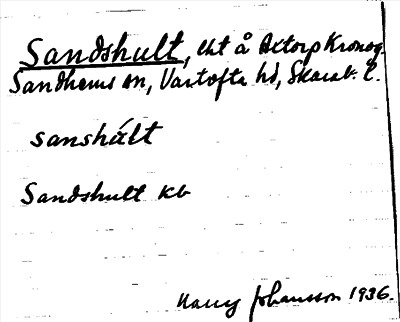 Sandshult, lht å Axtorp Kronog.
Sandhems sn, Vartofta hd, Skarab. l.
sanshúlt
Sandshult kb
Harry Johansson 1936.